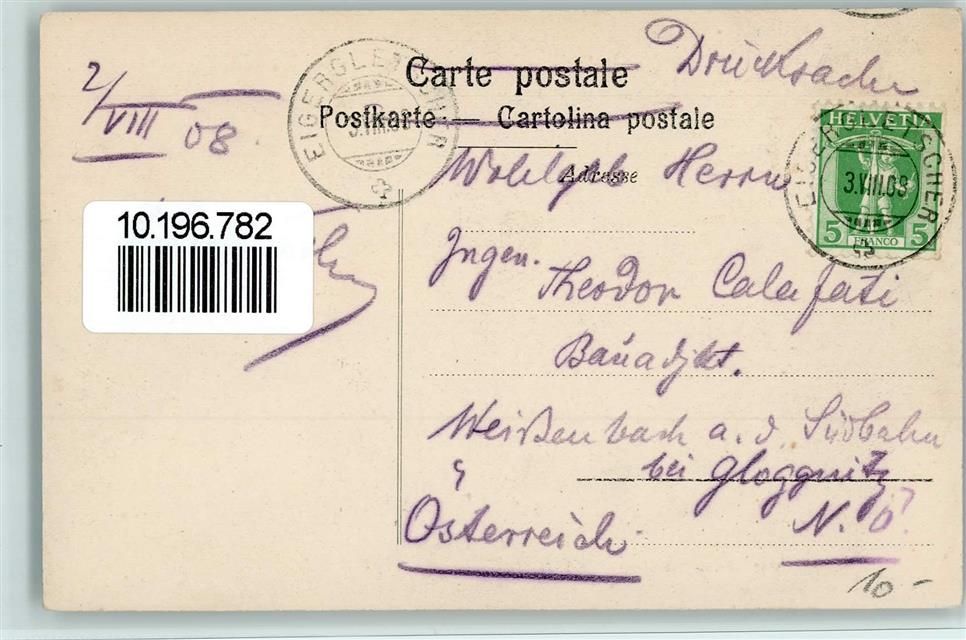 Carte postale
Drucksache
Postkarte — Cartolina postale
2/VIII 08.
EIGERGLETSCHER
3.VIII.08
HELVETIA
EIGERGLETSCHER
3.VIII.08
5 FRANCO 5
Adresse
Herrn
10.196.782
Ingen.
Theodor Calafati
Bauadjkt.
Weißenbach a. d. Südbahn
bei Gloggnitz
Österreich
N. Ö.
10 -